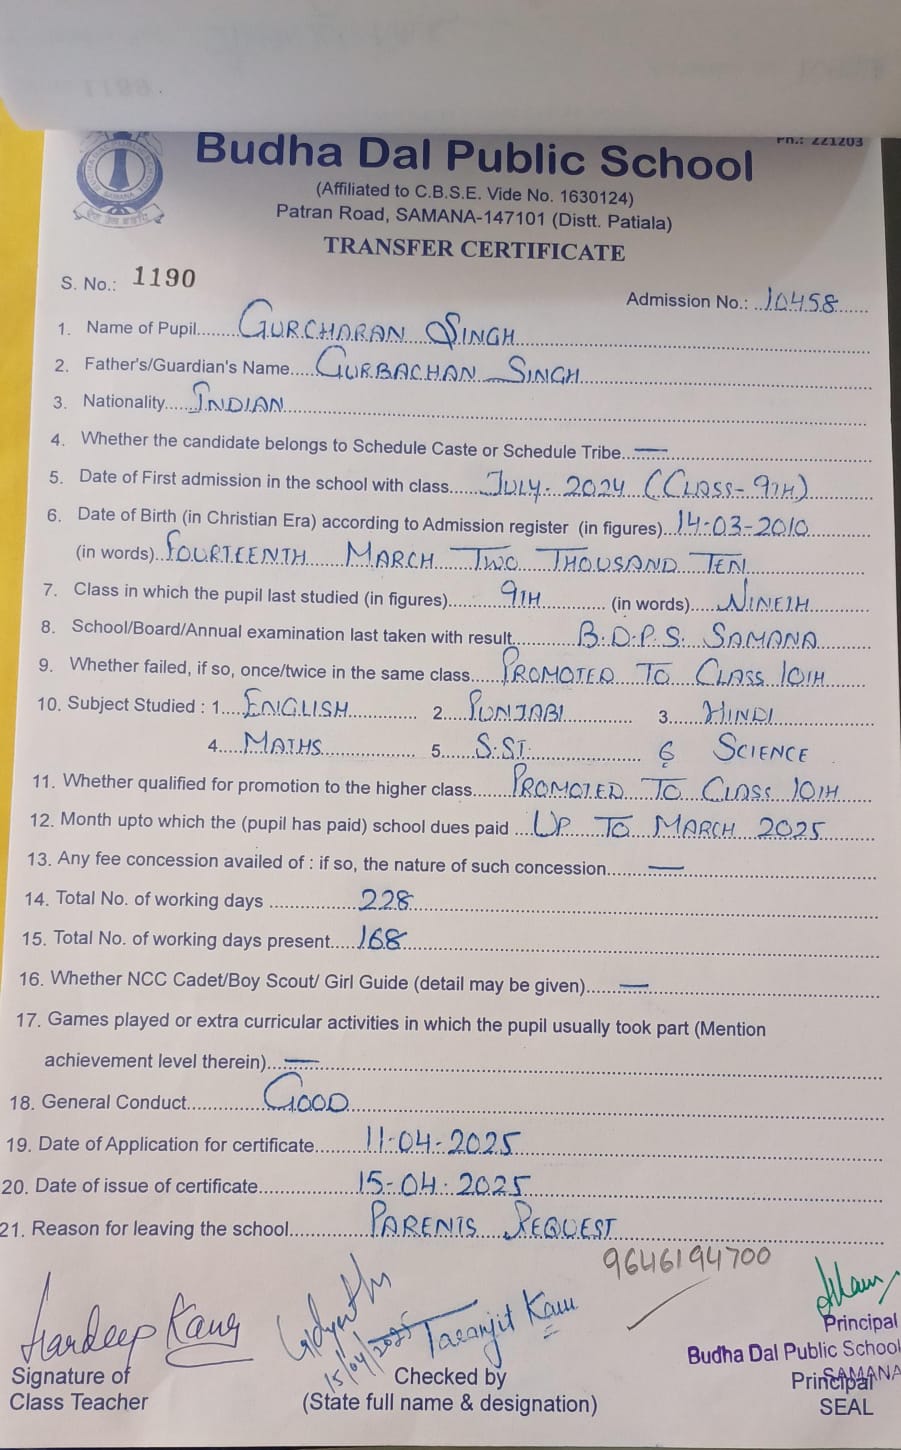 Ph.: 221203
Budha Dal Public School
(Affiliated to C.B.S.E. Vide No. 1630124)
Patran Road, SAMANA-147101 (Distt. Patiala)
TRANSFER CERTIFICATE
S. No.: 1190
Admission No.: 10458
1. Name of Pupil GURCHARAN SINGH
2. Father's/Guardian's Name GURBACHAN SINGH
3. Nationality INDIAN
4. Whether the candidate belongs to Schedule Caste or Schedule Tribe —
5. Date of First admission in the school with class JULY-2024 (CLASS-9TH)
6. Date of Birth (in Christian Era) according to Admission register (in figures) 14-03-2010
(in words) FOURTEENTH MARCH TWO THOUSAND TEN
7. Class in which the pupil last studied (in figures) 9TH (in words) NINETH
8. School/Board/Annual examination last taken with result B.D.P.S. SAMANA
9. Whether failed, if so, once/twice in the same class PROMOTED TO CLASS 10TH
10. Subject Studied : 1 ENGLISH 2 PUNJABI 3 HINDI
4 MATHS 5 S.ST. 6 SCIENCE
11. Whether qualified for promotion to the higher class PROMOTED TO CLASS 10TH
12. Month upto which the (pupil has paid) school dues paid UP TO MARCH 2025
13. Any fee concession availed of : if so, the nature of such concession —
14. Total No. of working days 228
15. Total No. of working days present 168
16. Whether NCC Cadet/Boy Scout/ Girl Guide (detail may be given) —
17. Games played or extra curricular activities in which the pupil usually took part (Mention
achievement level therein) —
18. General Conduct GOOD
19. Date of Application for certificate 11-04-2025
20. Date of issue of certificate 15-04-2025
21. Reason for leaving the school PARENTS REQUEST
9646194700
Hardeep Kaur
15/04/2025
Taranjit Kaur
Principal
Budha Dal Public School
SAMANA
Signature of
Class Teacher
Checked by
(State full name & designation)
Principal
SEAL